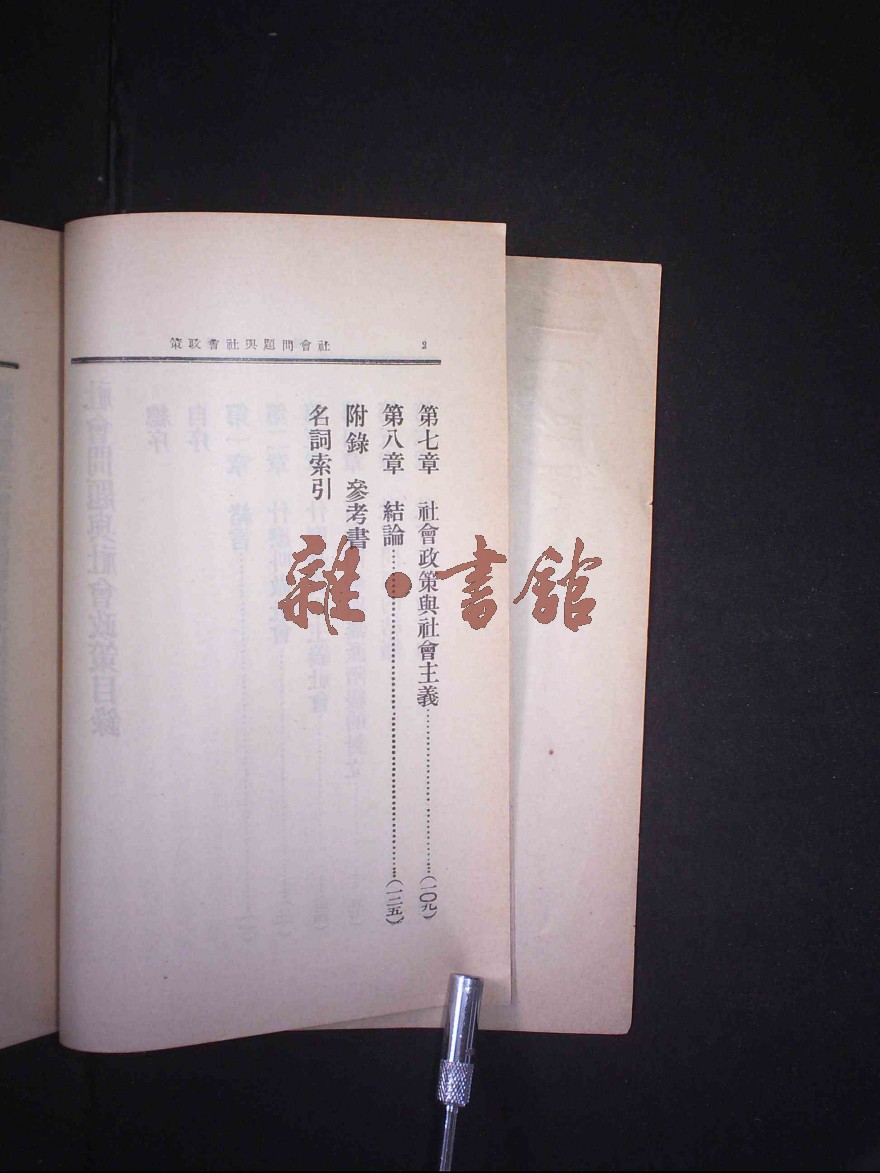 社會問題與社會政策 2
第七章 社會政策與社會主義……………………(一〇九)
第八章 結論………………………………………(一二五)
附錄 參考書
名詞索引
雜·書館